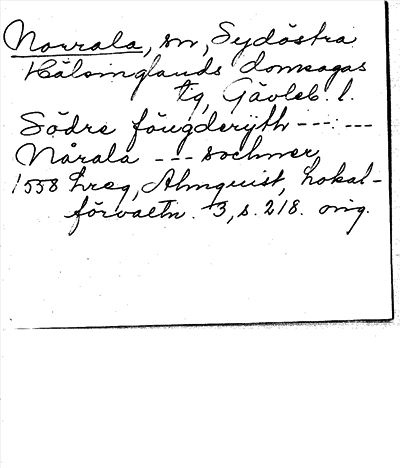 Norrala, sn, Sydöstra
Hälsinglands domsagas
tg, Gävleb. l.
Södre föugderijth ---:---
Nårala --- sochner
1558 hreg, Almquist, Lokal-
förvaltn. 3, s. 218. orig.